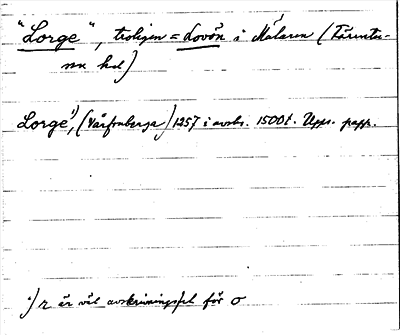 "Lorge", troligen = Lovön i Mälaren (Färentu-
na hd)
Lorge¹⁾, (Vårfruberga) 1257 i avskr. 1500t. Upps. papp.
¹⁾ r är väl avskrivningsfel för o